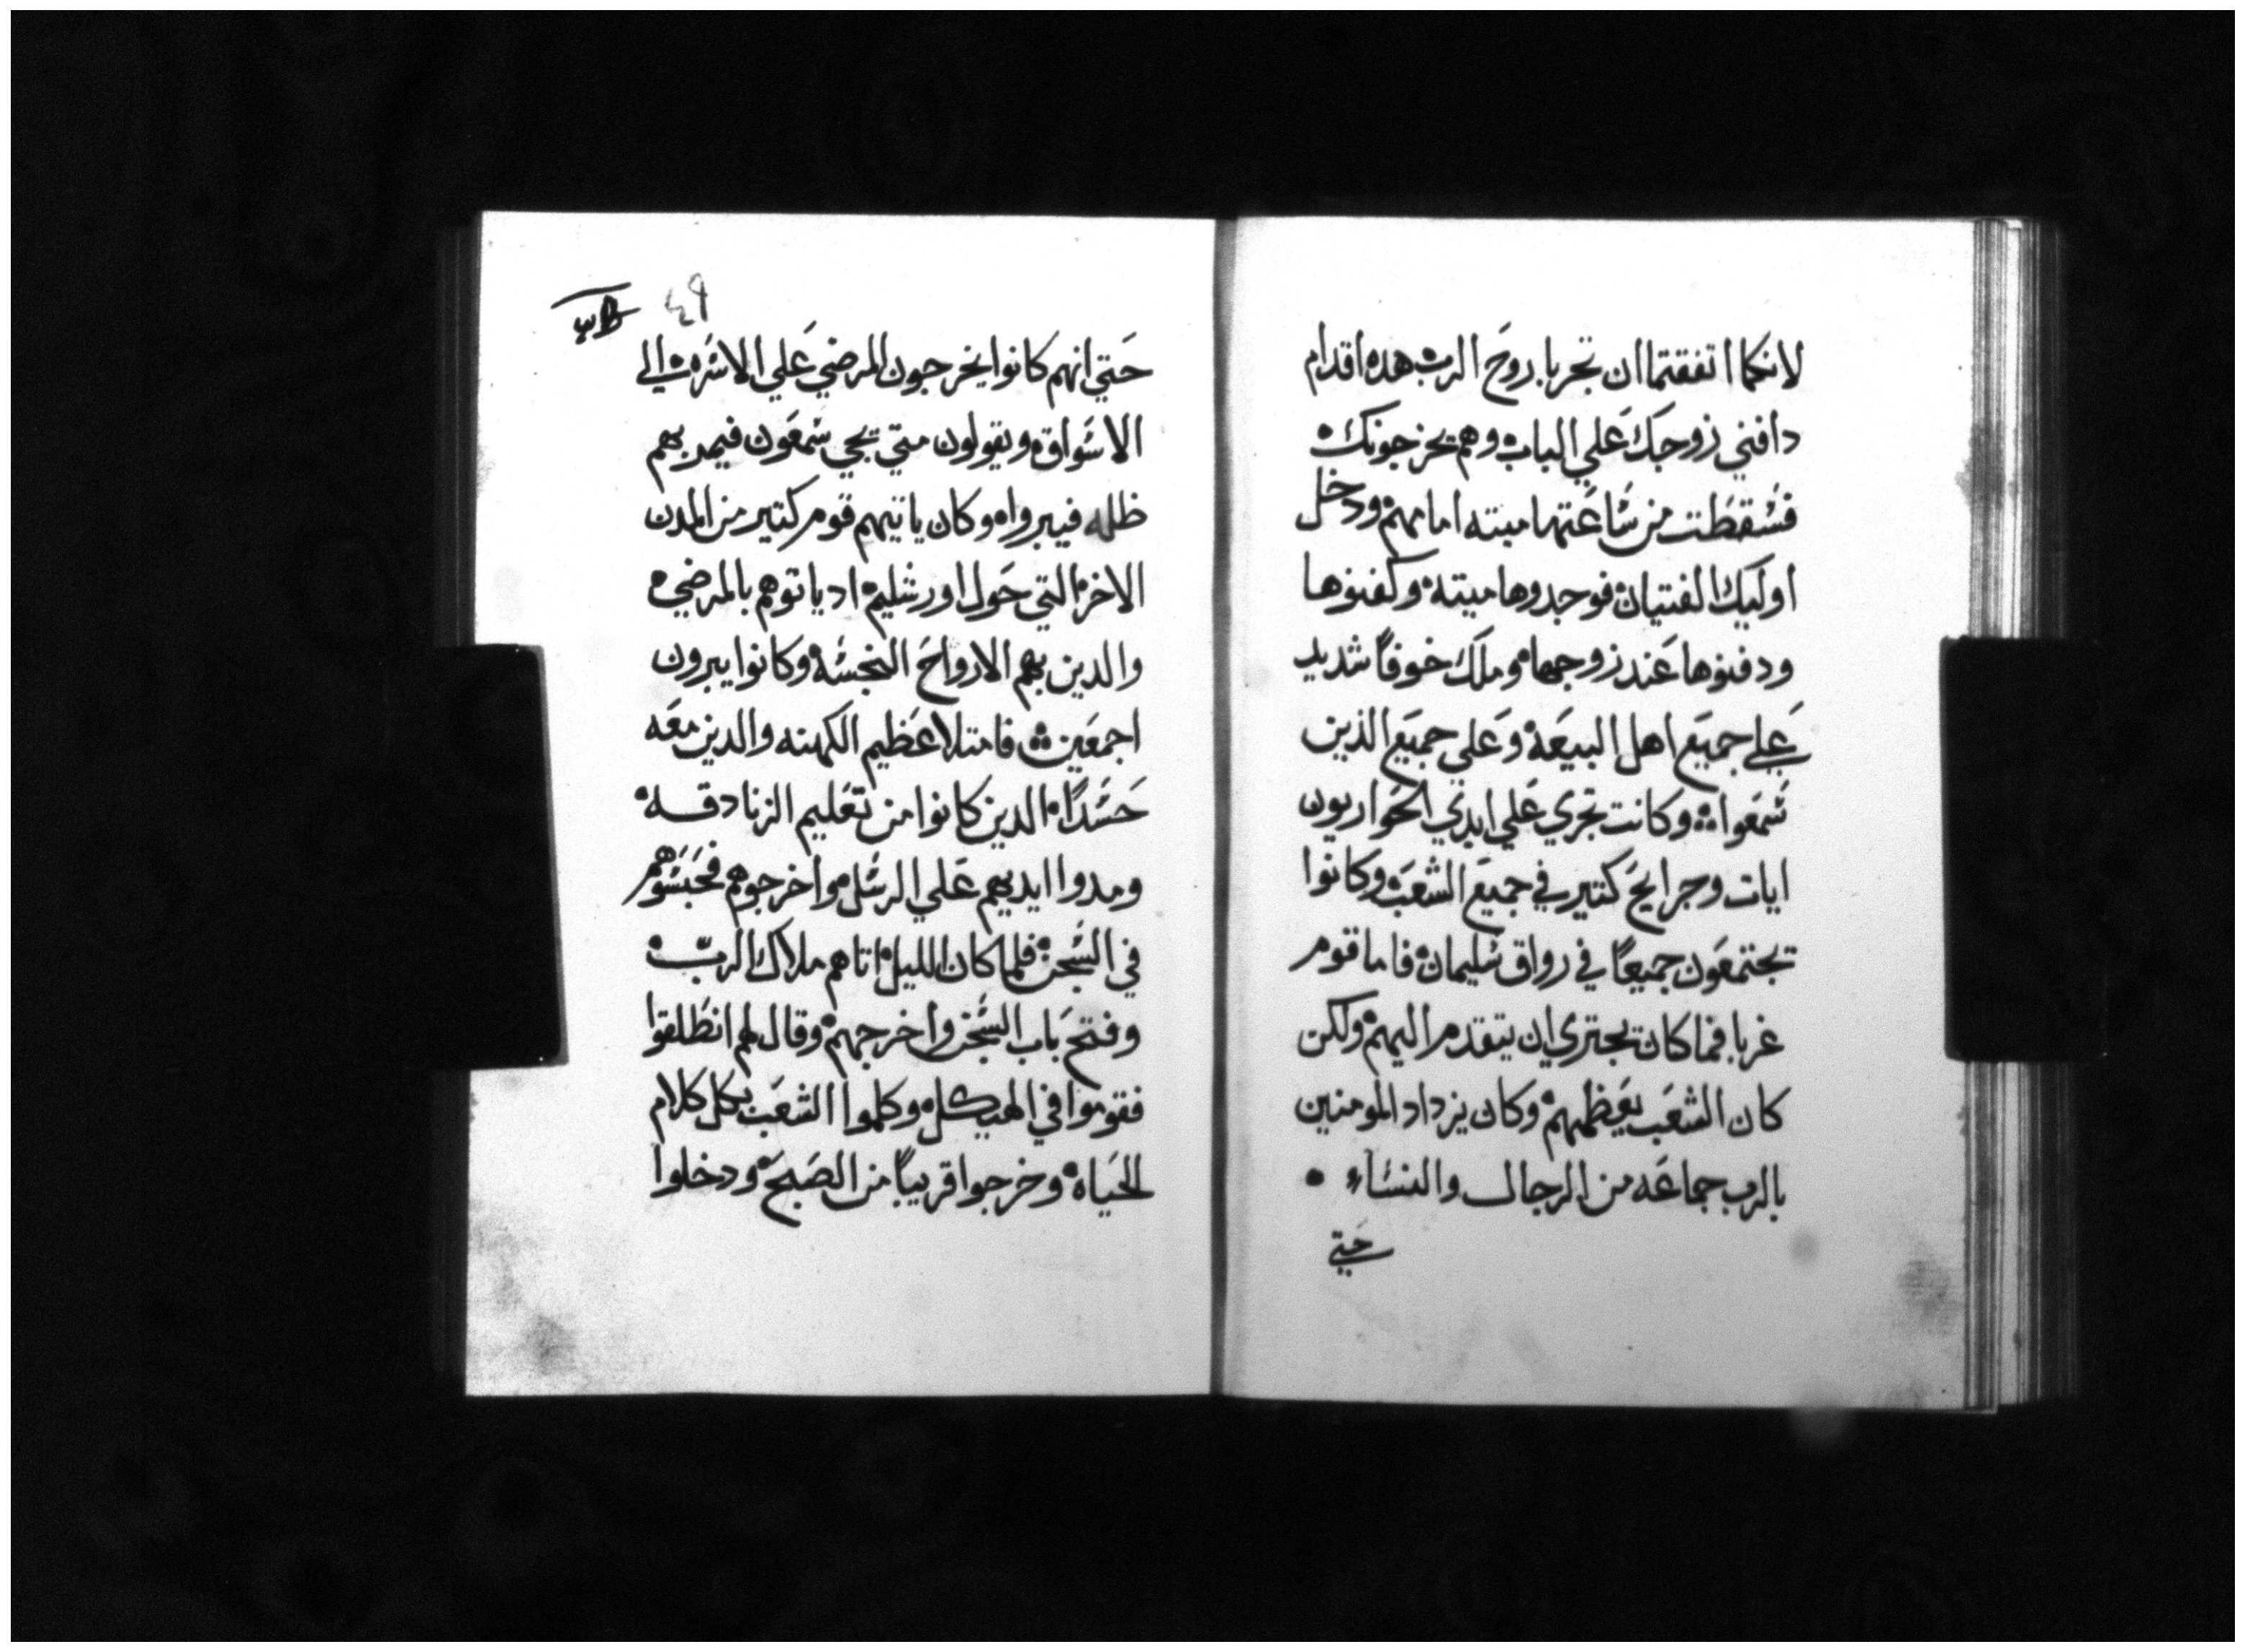 لانكما اتفقتما ان تجربا روح الرب هده اقدام
دافني زوجك علي الباب وهم يخرجونك
فسقطت من ساعتها ميته امامهم ودخل
اوليك الفتيان فوجدوها ميته وكفنوها
ودفنوها عند زوجها وملك خوفاً شديد
علي جميع اهل البيعه وعلي جميع الذين
سمعوا وكانت تجري علي ايدي الحواريون
ايات وجرايح كتير في جميع الشعب وكانوا
يجتمعون جميعاً في رواق سليمان فاما قوم
غربا فما كان يجتري ان يتقدم اليهم ولكن
كان الشعب يعظمهم وكان يزداد المومنين
بالرب جماعه من الرجال والنساء
حتي
٤٩
حتي انهم كانوا يخرجون المرضي علي الاسره الي
الاسواق ويقولون متي يجي سمعون فيمر بهم
ظله فيبروا وكان ياتيهم قوم كتير من المدن
الاخره التي حول اورشليم اد ياتوهم بالمرضي
والدين بهم الارواح النجسه وكانوا يبرون
اجمعين فامتلا عظيم الكهنه والدين معه
حسداً الدين كانوا من تعليم الزنادقه
ومدوا ايديهم علي الرسل واخرجوهم فحبسوهم
في السجن فلما كان الليل اتاهم ملاك الرب
وفتح باب السجن واخرجهم وقال لهم انطلقوا
فقوموا في الهيكل وكلموا الشعب بكل كلام
الحياه وخرجوا قريباً من الصبح ودخلوا